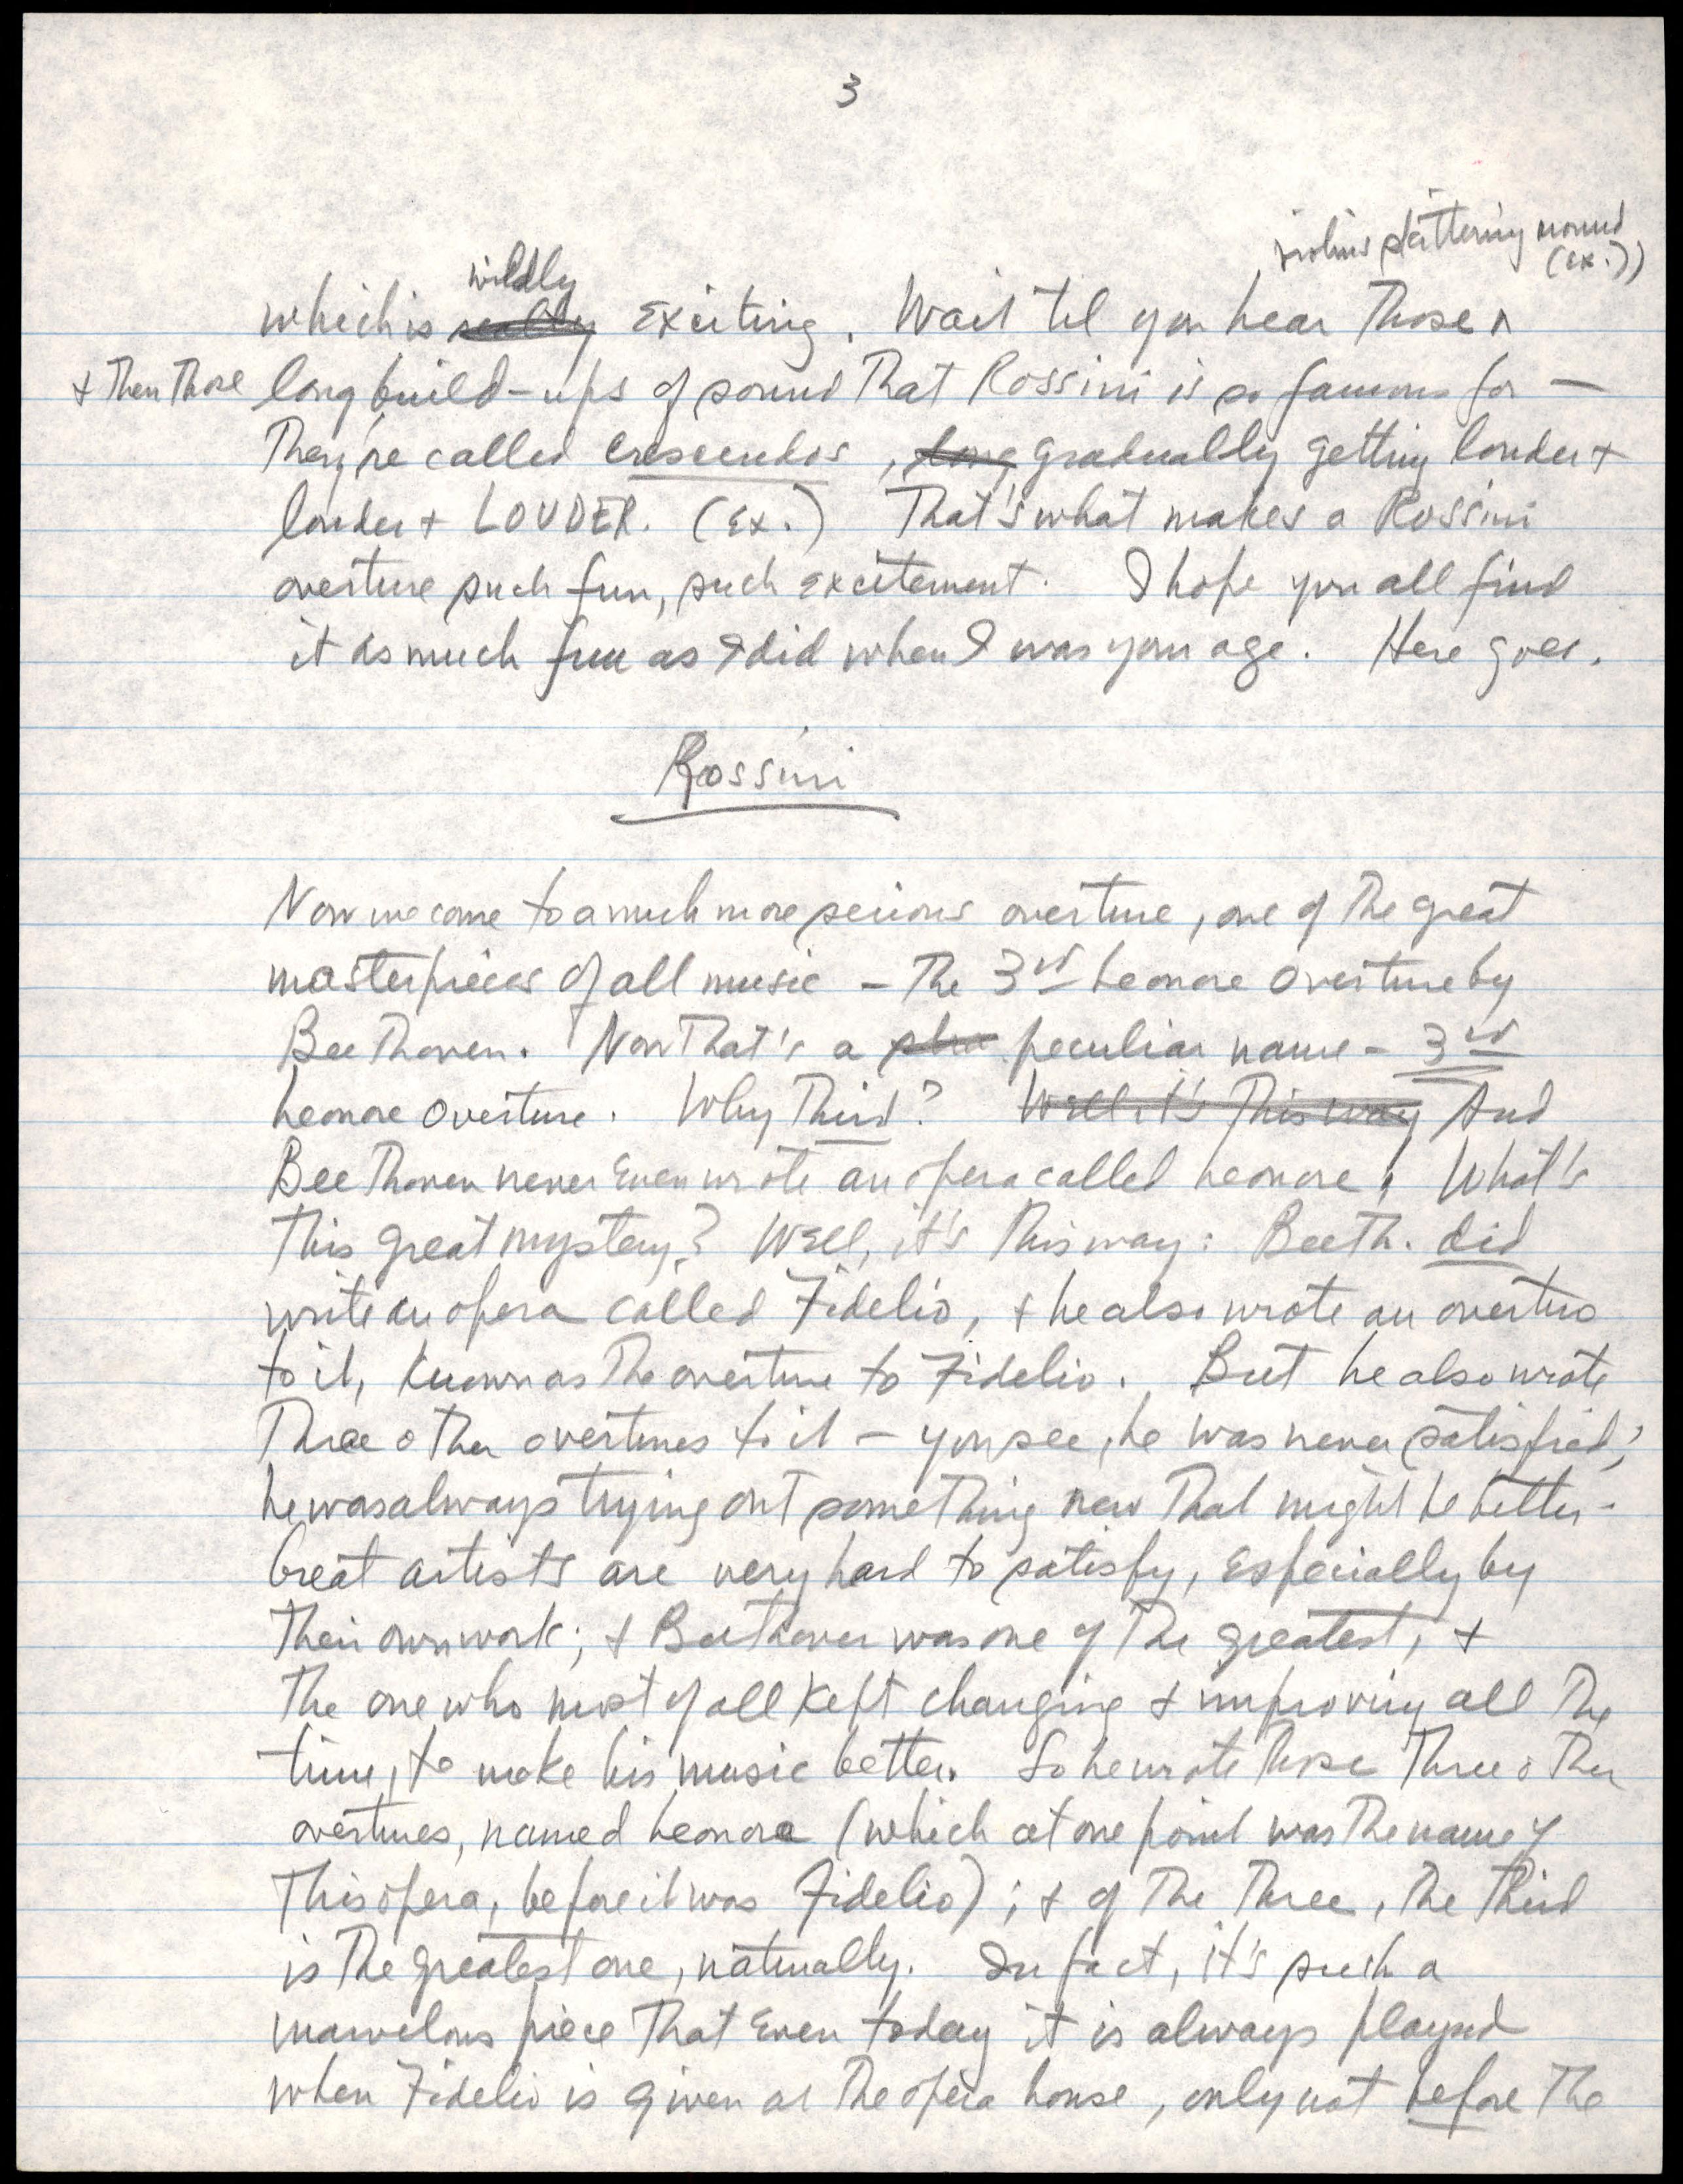 3
violins skittering around
(ex.))
wildly
which is really exciting. Wait til you hear those ^
& then those long build-ups of sound that Rossini is so famous for —
They're called crescendos, long gradually getting louder &
louder & LOUDER. (Ex.) That's what makes a Rossini
overture such fun, such excitement. I hope you all find
it as much fun as I did when I was your age. Here goes.
Rossini
Now we come to a much more serious overture, one of the great
masterpieces of all music – the 3rd Leonore Overture by
Beethoven. Now that's a peculiar name – 3rd
Leonore Overture. Why Third? Well, it's this way And
Beethoven never even wrote an opera called Leonore! What's
this great mystery? Well, it's this way: Beeth. did
write an opera called Fidelio, & he also wrote an overture
to it, known as the overture to Fidelio. But he also wrote
three other overtures to it – you see, he was never satisfied;
he was always trying out something new that might be better.
Great artists are very hard to satisfy, especially by
their own work; & Beethoven was one of the greatest, &
the one who most of all kept changing & improving all the
time, to make his music better. So he wrote these three other
overtures, named Leonore (which at one point was the name of
this opera, before it was Fidelio); & of the three, the third
is the greatest one, naturally. In fact, it's such a
marvelous piece that even today it is always played
when Fidelio is given at the opera house, only not before the